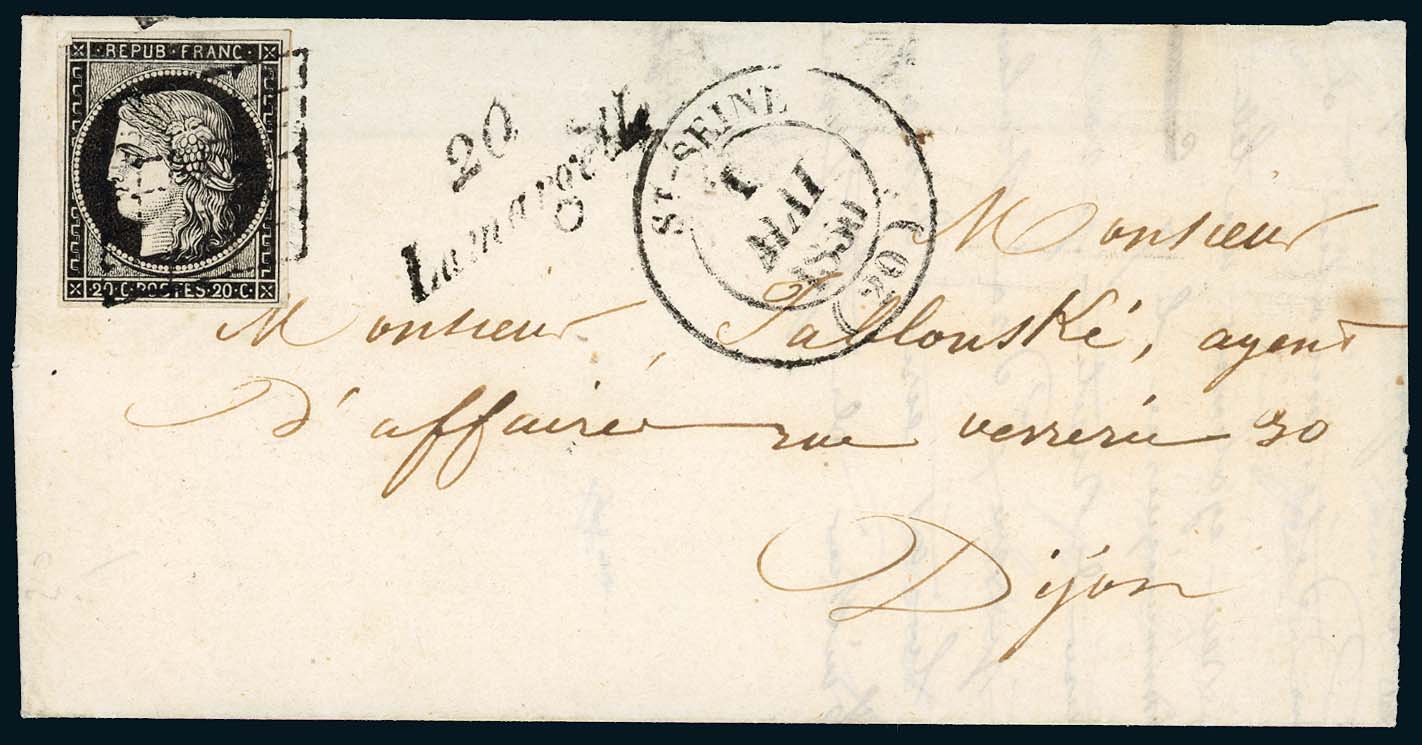 REPUB·FRANC·
20·C·POSTES·20·C·
20
Lamargelle
ST-SEINE
1
MAI
1850
(20)
Monsieur
Monsieur, Jablouské, agent
D'affaire rue verrerie 30
Dijon